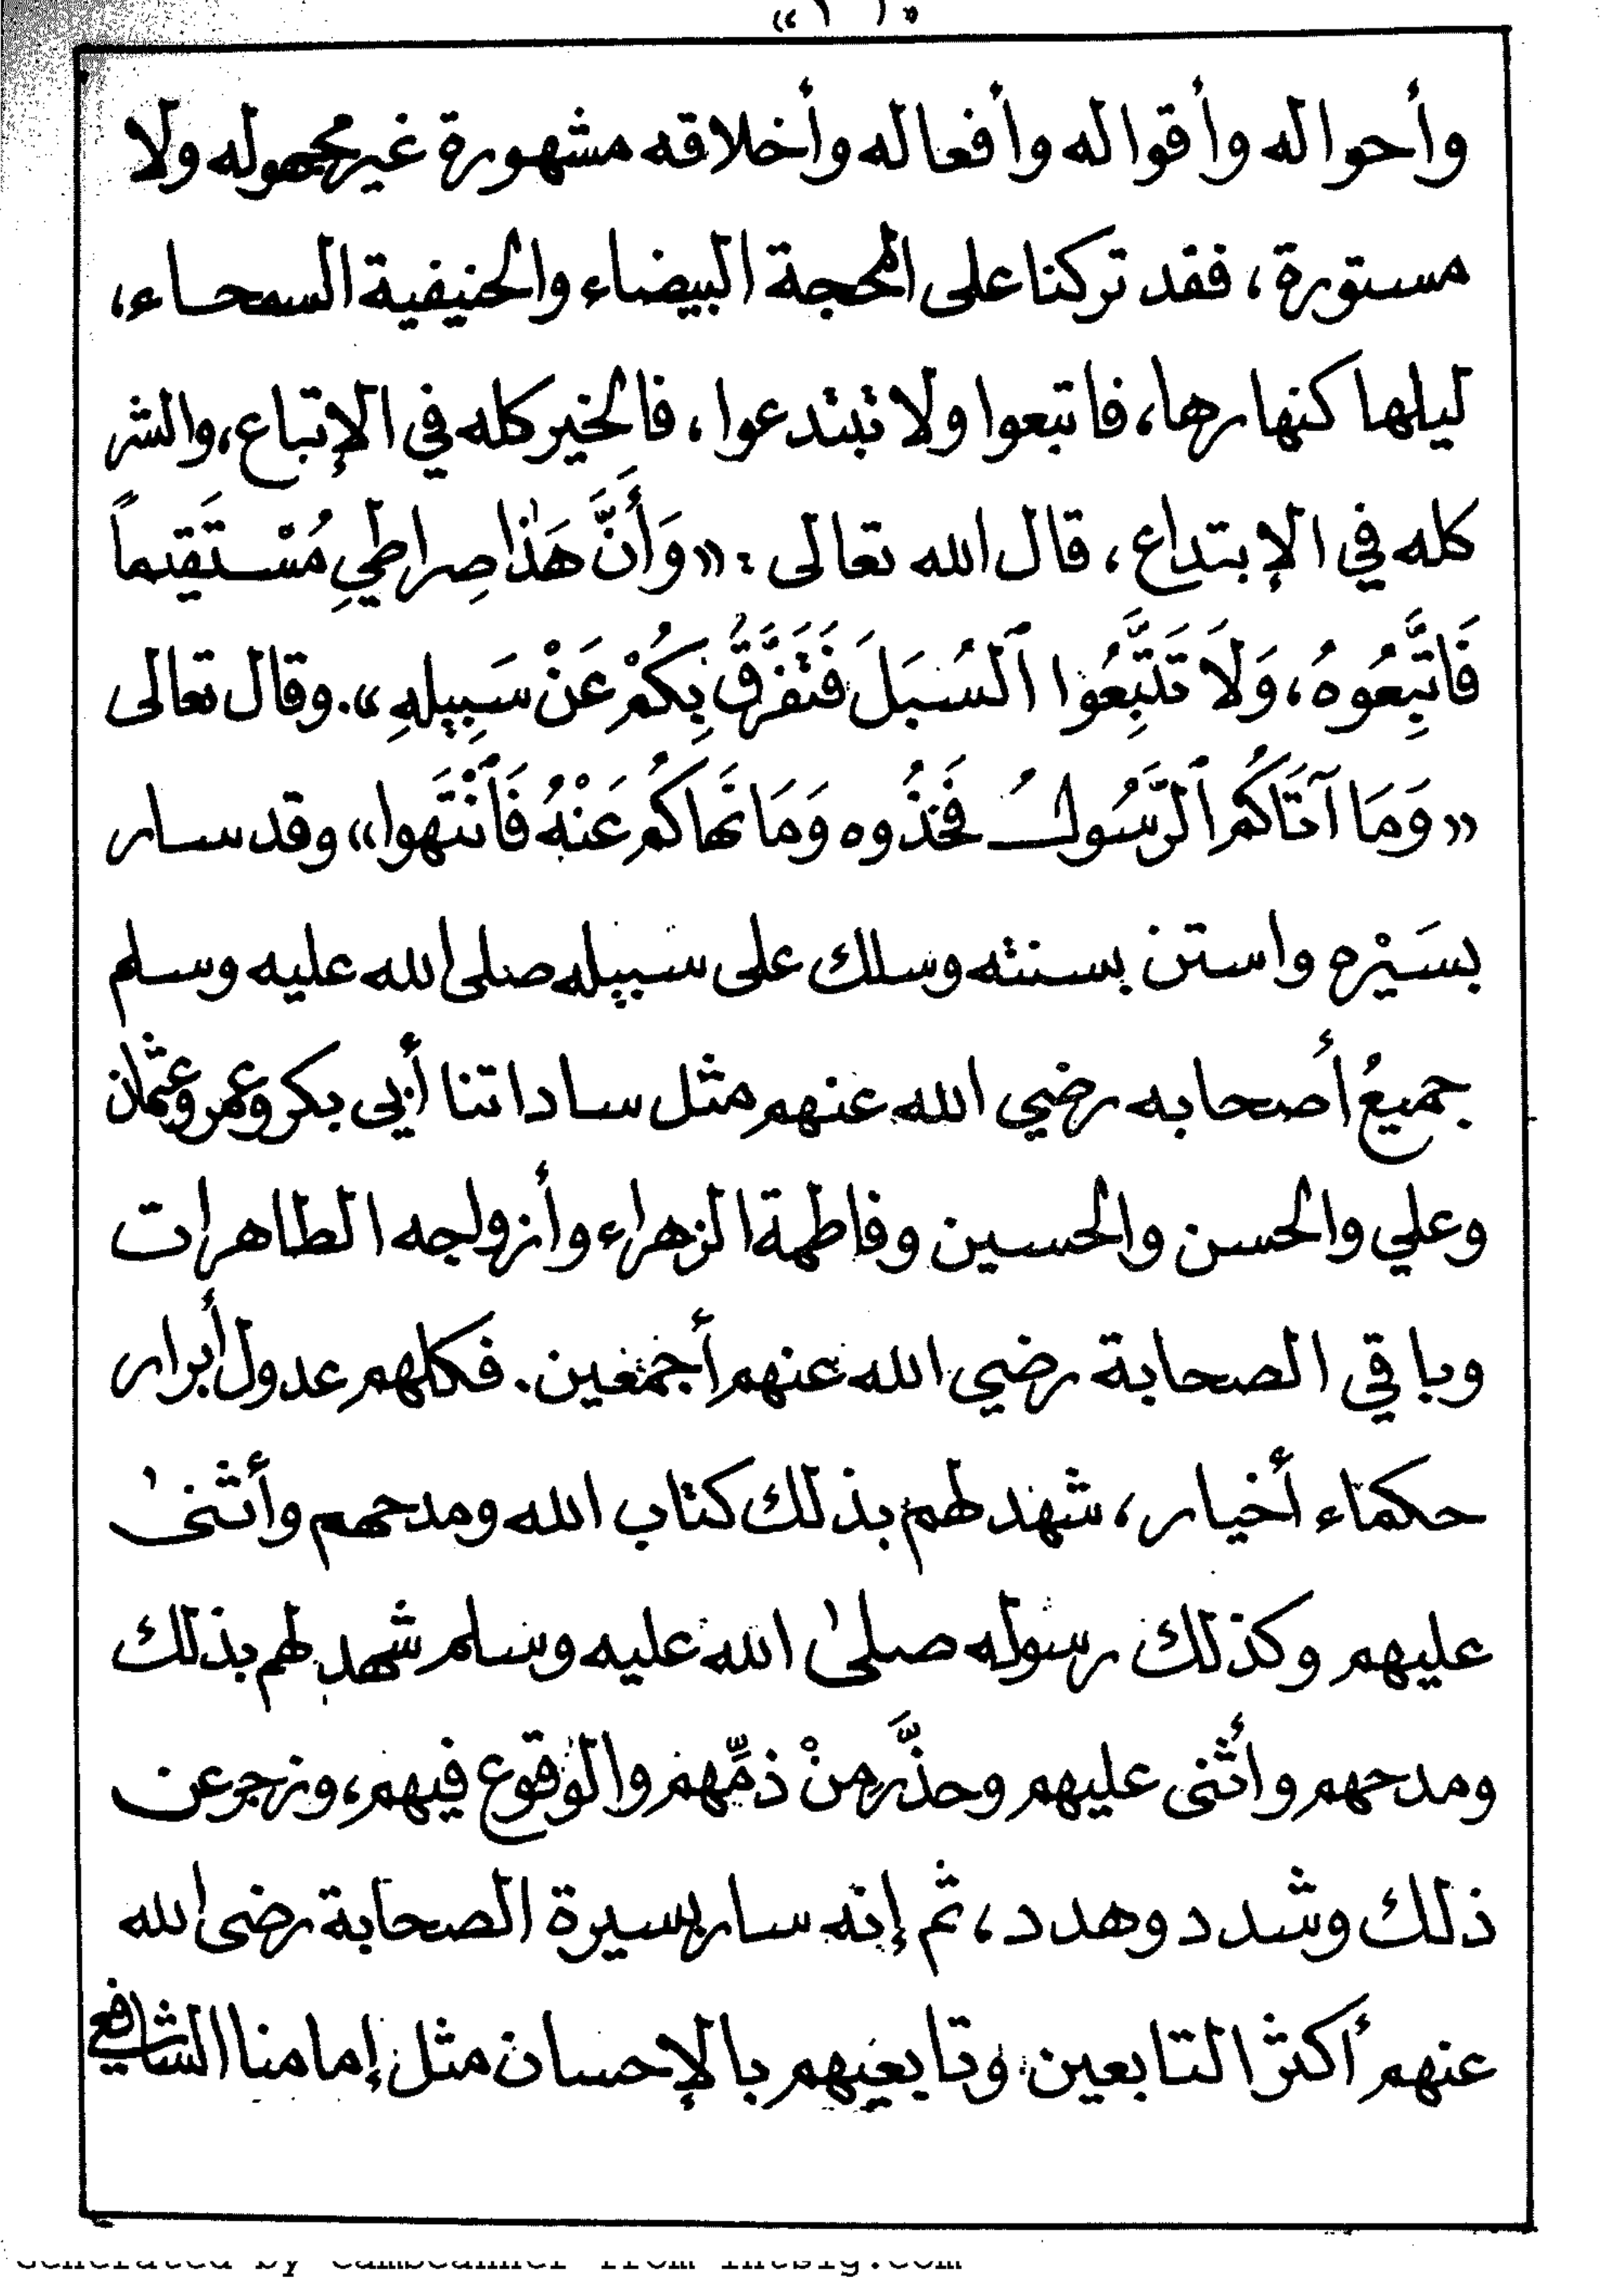 وأحواله وأقواله وأفعاله وأخلاقه مشهورة غير مجهوله ولا
مستورة ، فقد تركنا على المحجة البيضاء والحنيفية السمحاء ،
ليلها كنهارها ، فاتبعوا ولا تبتدعوا ، فالخير كله في الإتباع ، والشر
كله في الإبتداع ، قال الله تعالى : «وَأَنَّ هَذَا صِراطِي مُسْتَقِيماً
فَاتَّبِعُوهُ ، وَلَا تَتَّبِعُوا ٱلسُبَلَ فَتَفَرَّقَ بِكُمْ عَنْ سَبِيلِهِ» . وقال تعالى
«وَمَا آتَاكُمُ ٱلرَّسُولُ فَخُذُوه وَمَا نَهاكُمْ عَنْهُ فَٱنْتَهوا» وقد سار
بسَيْره واستن بسنته وسلك على سبيله صلى الله عليه وسلم
جميعُ أصحابه رضي الله عنهم مثل ساداتنا أبي بكر وعمر وعثمان
وعلي والحسن والحسين وفاطمة الزهراء وأزواجه الطاهرات
وباقي الصحابة رضي الله عنهم أجمعين . فكلهم عدول أبرار
حكماء أخيار ، شهد لهم بذلك كتاب الله ومدحهم وأثنى
عليهم وكذلك رسوله صلى الله عليه وسلم شهد لهم بذلك
ومدحهم وأثنى عليهم وحذَّر منْ ذمِّهم والوقوع فيهم ، وزجر عن
ذلك وشدد وهدد ، ثم إنه سار بسيرة الصحابة رضى الله
عنهم أكثر التابعين وتابعيهم بالإحسان مثل إمامنا الشافعي
Generated by CamScanner from intsig.com